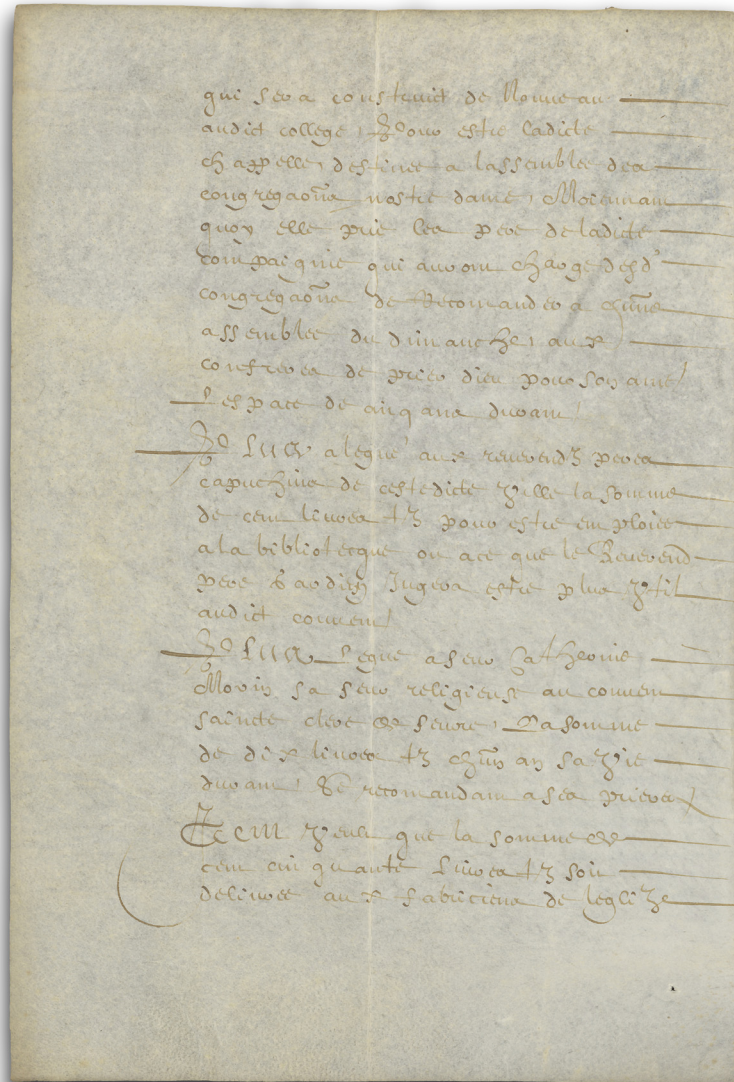 qui sera construict de Nouveau
audict college, Pour estre ladicte
chappelle, destinee a lassemblee des
congregaons nostre dame, Moiennant
quoy elle prie les pere de ladicte
compaignie qui auront charge desd'
congregaons de Recomander a chune
assemblee du dimanche, aux
confreres de prier dieu pour son ame
Lespace de cinq ans durant
alegué aux reverendz peres
capuchins de cestedicte ville la somme
de cent livres tz pour estre emploiee
a la bibliotecque ou a ce que le Reverend
pere Gardien Jugera estre plus vtil
audict couvent
Legue a seur Catherine
Morin sa seur religieuse au couvent
saincte clere de , La somme
de dix livres tz chun an sa vie
durant, Se recomandant a ses prieres
Item veult que la somme de
cent cinquante livres tz soit
delivree aux fabriciens de leglize